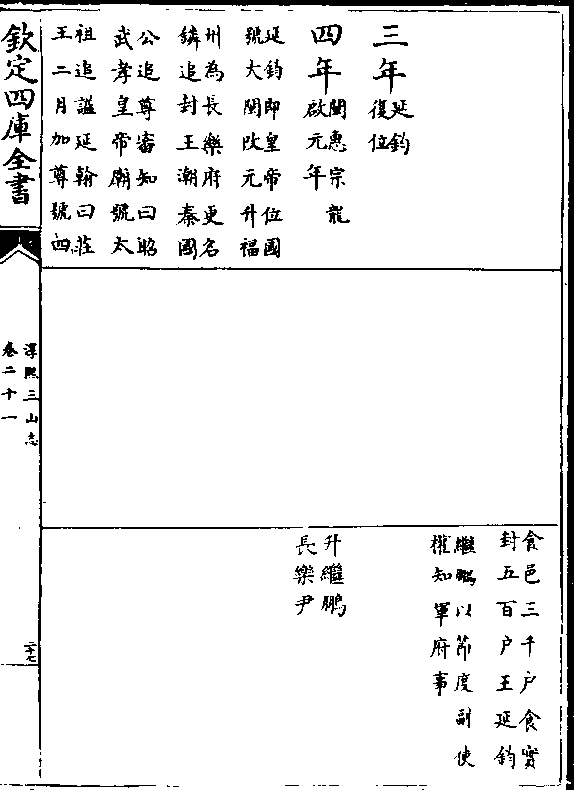 三年延鈞
復位
四年閩惠宗龍
啟元年
延鈞即皇帝位國
號大閩改元升福
州為長樂府更名
鏻追封王潮秦國
公追尊審知曰昭
武孝皇帝廟號太
祖追諡延翰曰莊
王二月加尊號曰
食邑三千户食實
封五百户王延鈞
繼鵬以節度副使
權知軍府事
升繼鵬
長樂尹
欽定四庫全書
淳熙三山志
卷二十一
二十七